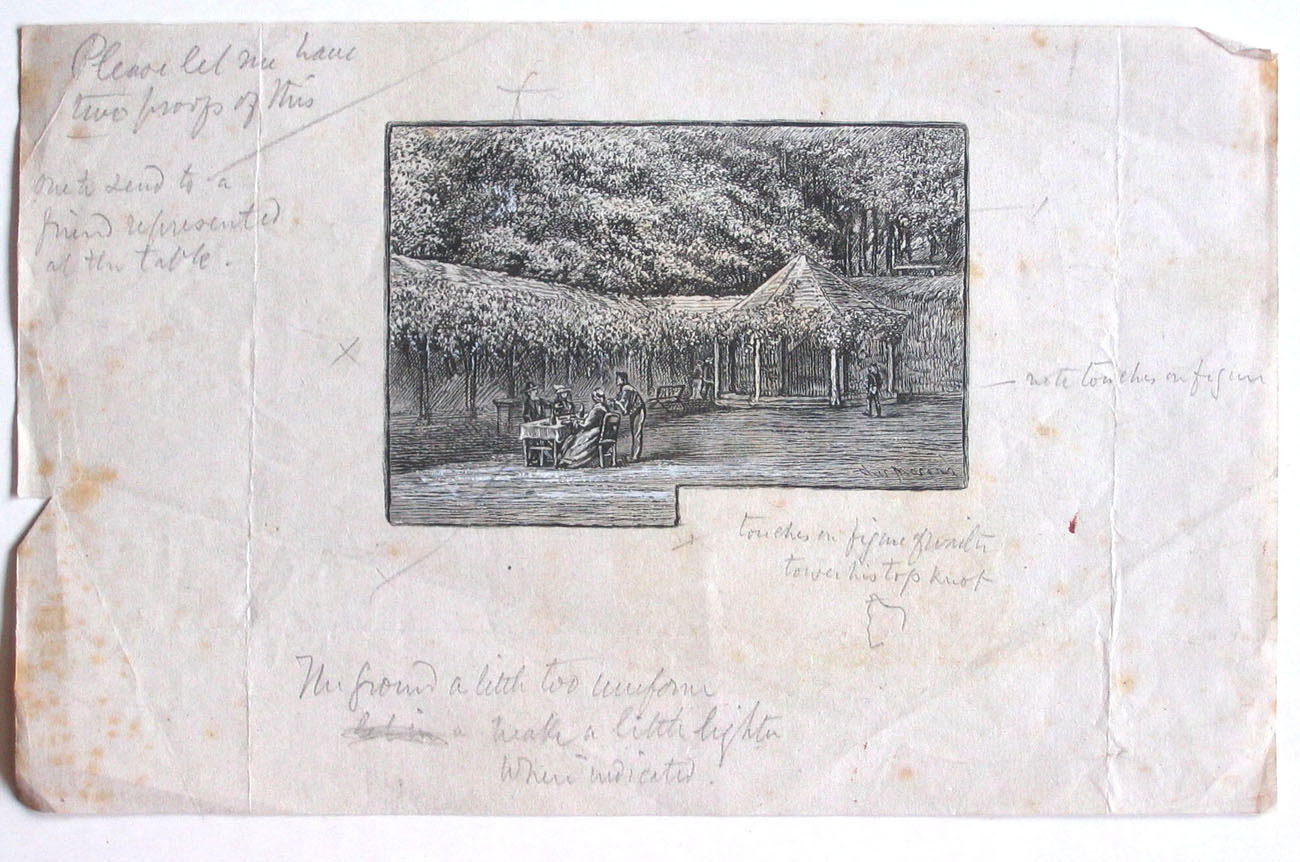 Please let me have
two proofs of this
one to send to a
friend represented
at the table.
note touches on figure
touches on figure of waiter
lower his top knot
The ground a little too uniform
let in a make a little lighter
When indicated.